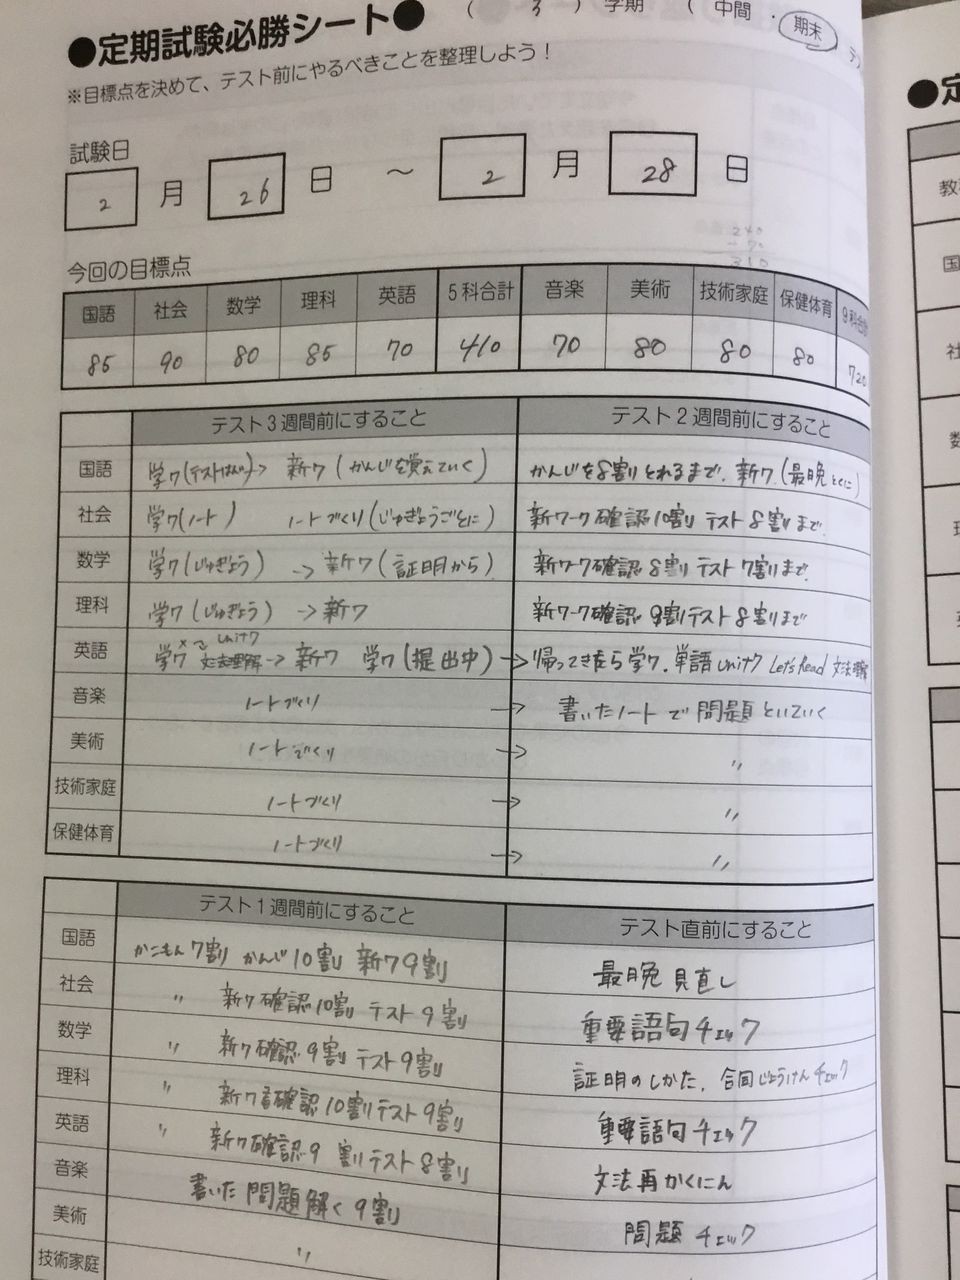 ●定期試験必勝シート● ( 3 ) 学期 ( 中間 ・ 期末
※目標点を決めて、テスト前にやるべきことを整理しよう！
試験日
2 月 26 日 ～ 2 月 28 日
240
70
310
今回の目標点
国語 社会 数学 理科 英語 5科合計 音楽 美術 技術家庭 保健体育 9科合計
85 90 80 85 70 410 70 80 80 80 720
テスト3週間前にすること テスト2週間前にすること
国語 学ワ(テストはんい)→ 新ワ (かんじを覚えていく) かんじを8割りとれるまで. 新ワ.(最晩とくに)
社会 学ワ(ノート) ノートづくり(じゅぎょうごとに) 新ワーク確認10割りテスト8割りまで.
数学 学ワ(じゅぎょう) → 新ワ(証明から) 新ワーク確認8割りテスト7割りまで.
理科 学ワ(じゅぎょう) →新ワ 新ワーク確認9割テスト8割りまで
英語 学ワ unit7 文法理解→新ワ 学ワ(提出中) →帰ってきたら学ワ.単語unit7 Let's Read 文法理解
音楽 ノートづくり → 書いたノートで問題といていく
美術 ノートづくり → 〃
技術家庭 ノートづくり → 〃
保健体育 ノートづくり → 〃
テスト1週間前にすること テスト直前にすること
国語 かこもん7割り かんじ10割り 新ワ9割り 最晩見直し
社会 〃 新ワ確認10割り テスト9割り 重要語句チェック
数学 〃 新ワ確認9割り テスト9割り 証明のしかた. 合同じょうけんチェック
理科 〃 新ワ確認10割りテスト9割り 重要語句チェック
英語 〃 新ワ確認9割りテスト8割り 文法再かくにん
音楽 書いた問題解く9割り 問題チェック
美術 〃
技術家庭
●定
教
国
社
数